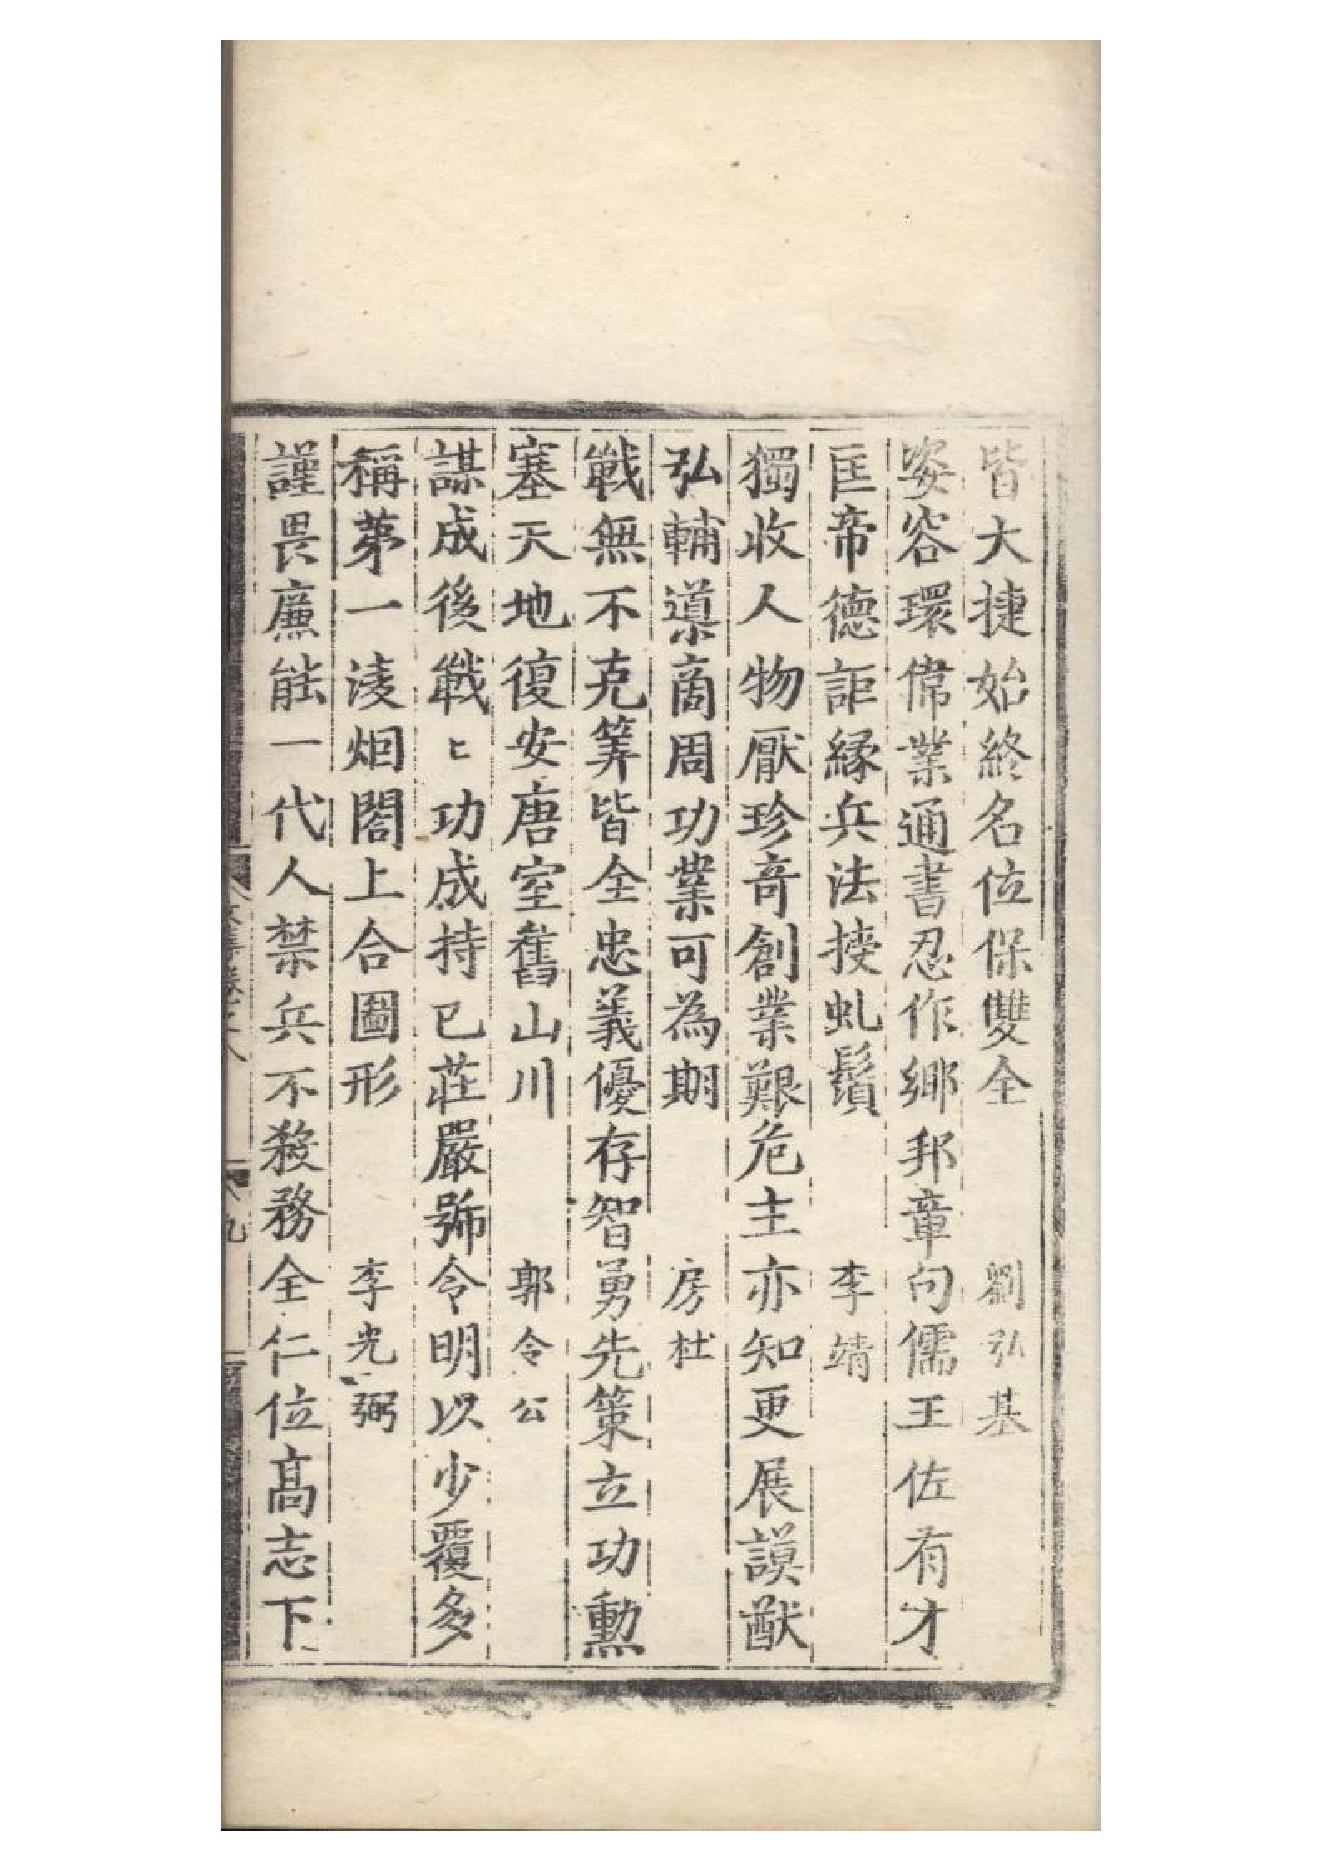 皆大捷始終名位保雙全 劉弘基
姿容環偉業通書忍作鄉邦章句儒王佐有才
匡帝德詎緣兵法挾虬鬚 李靖
獨收人物厭珍奇創業艱危主亦知更展謨猷
弘輔導商周功業可為期 房杜
戰無不克筭皆全忠義優存智勇先策立功勳
塞天地復安唐室舊山川 郭令公
謀成後戰〻功成持已莊嚴號令明以少覆多
稱苐一淩烟閣上合圖形 李光弼
謹畏廉能一代人禁兵不殺務全仁位高志下